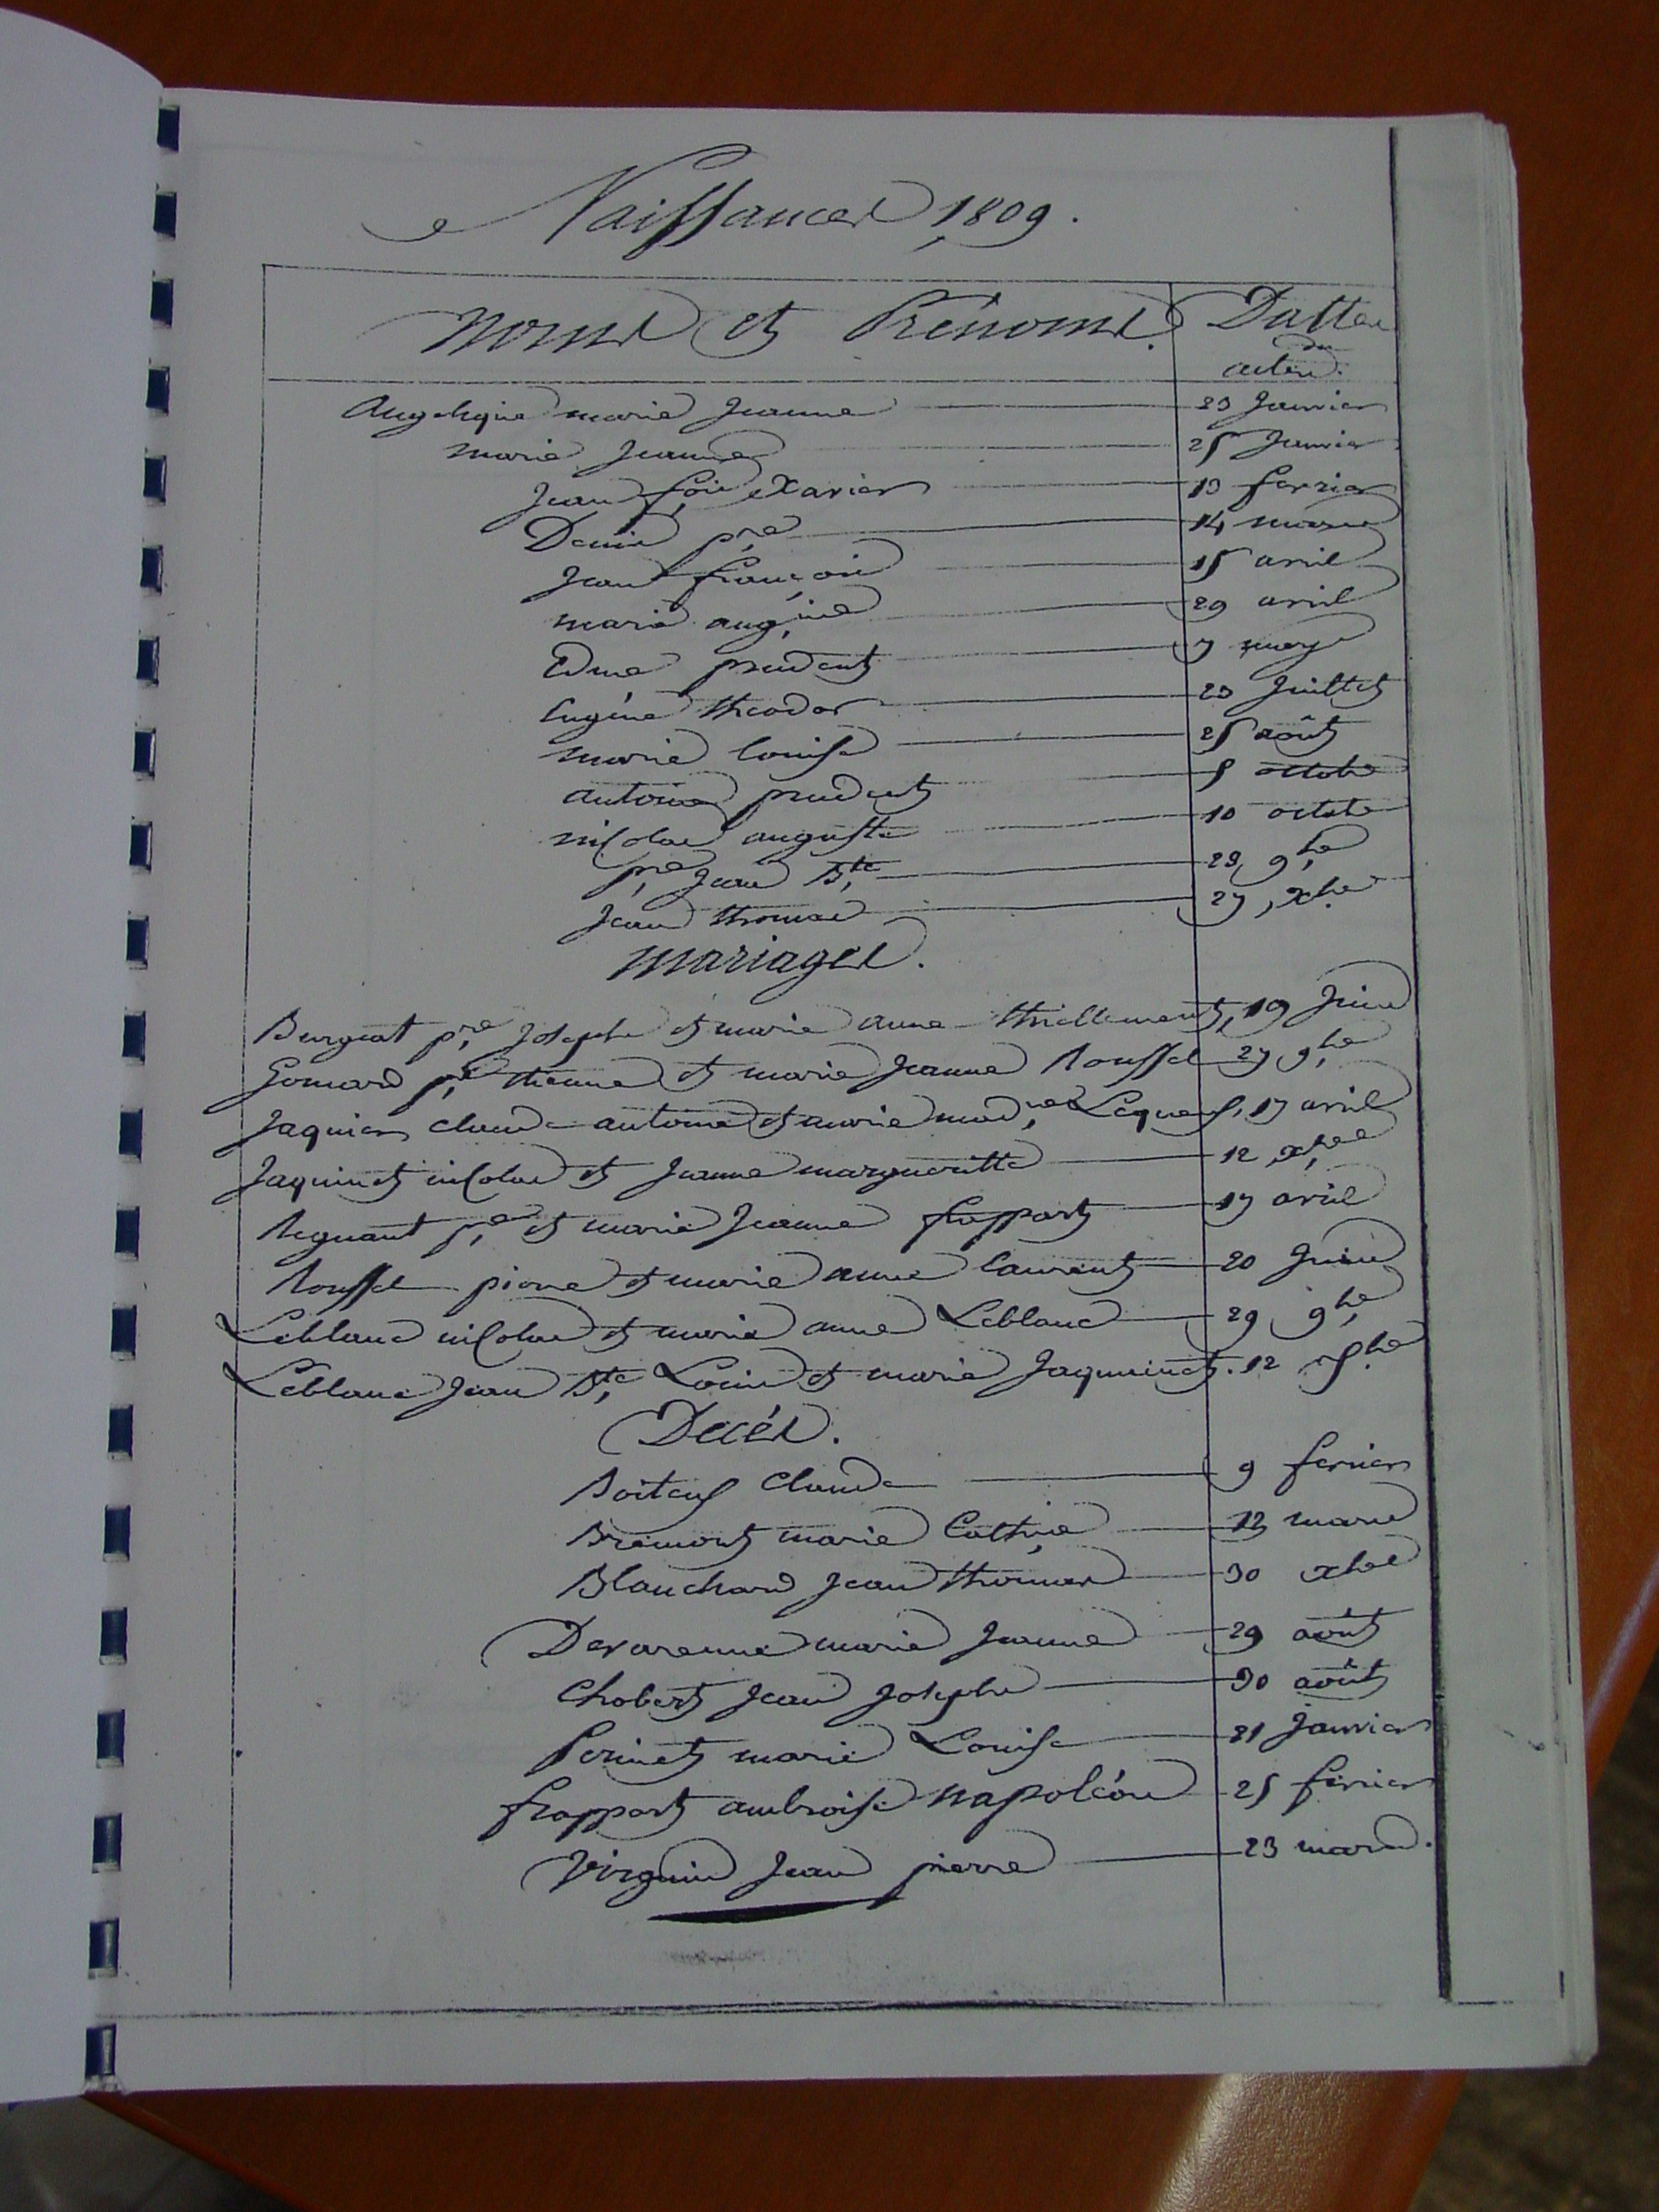 Naissances 1809.
Noms et Prénoms. Dattes
des
actes.
Angelique marie Jeanne 23 Janvier
marie Jeanne 25 Janvier
Jean fois Xavier 13 fevrier
Denis pre 14 mars
Jean françois 15 avril
marie augine 29 avril
Edme prudent 7 may
Eugéne theodor 23 Juillet
marie louise 25 août
antoine prudent 5 octobre
nicolas auguste 10 octobre
pre Jean Bte 28 9bre
Jean thomas 27 xbre
Mariages.
Burgeat pre Joseph et marie anne thiellement, 19 Juin
Gomard pre etienne et marie Jeanne Roussel 27 9bre
Jaquier claude antoine et marie madne Lequeuf, 17 avril
Jaquinet nicolas et Jeanne margueritte 12 xbre
Regnant pre et marie Jeanne frappart 17 avril
Roussel pierre et marie anne laurent 20 Juin
Leblanc nicolas et marie anne Leblanc 29 9bre
Leblanc Jean Bte Louis et marie Jaquinet. 12
Decés.
Boiteuf Claude 9 fevrier
Bremont marie Cathne 12 mars
Blanchard Jean thomas 30 xbre
Devarenne marie Jeanne 29 août
Chobert Jean Joseph 30 août
Perinet marie Louise 21 Janvier
frappart ambroise napoléon 25 fevrier
Virguin Jean pierre 23 mars.